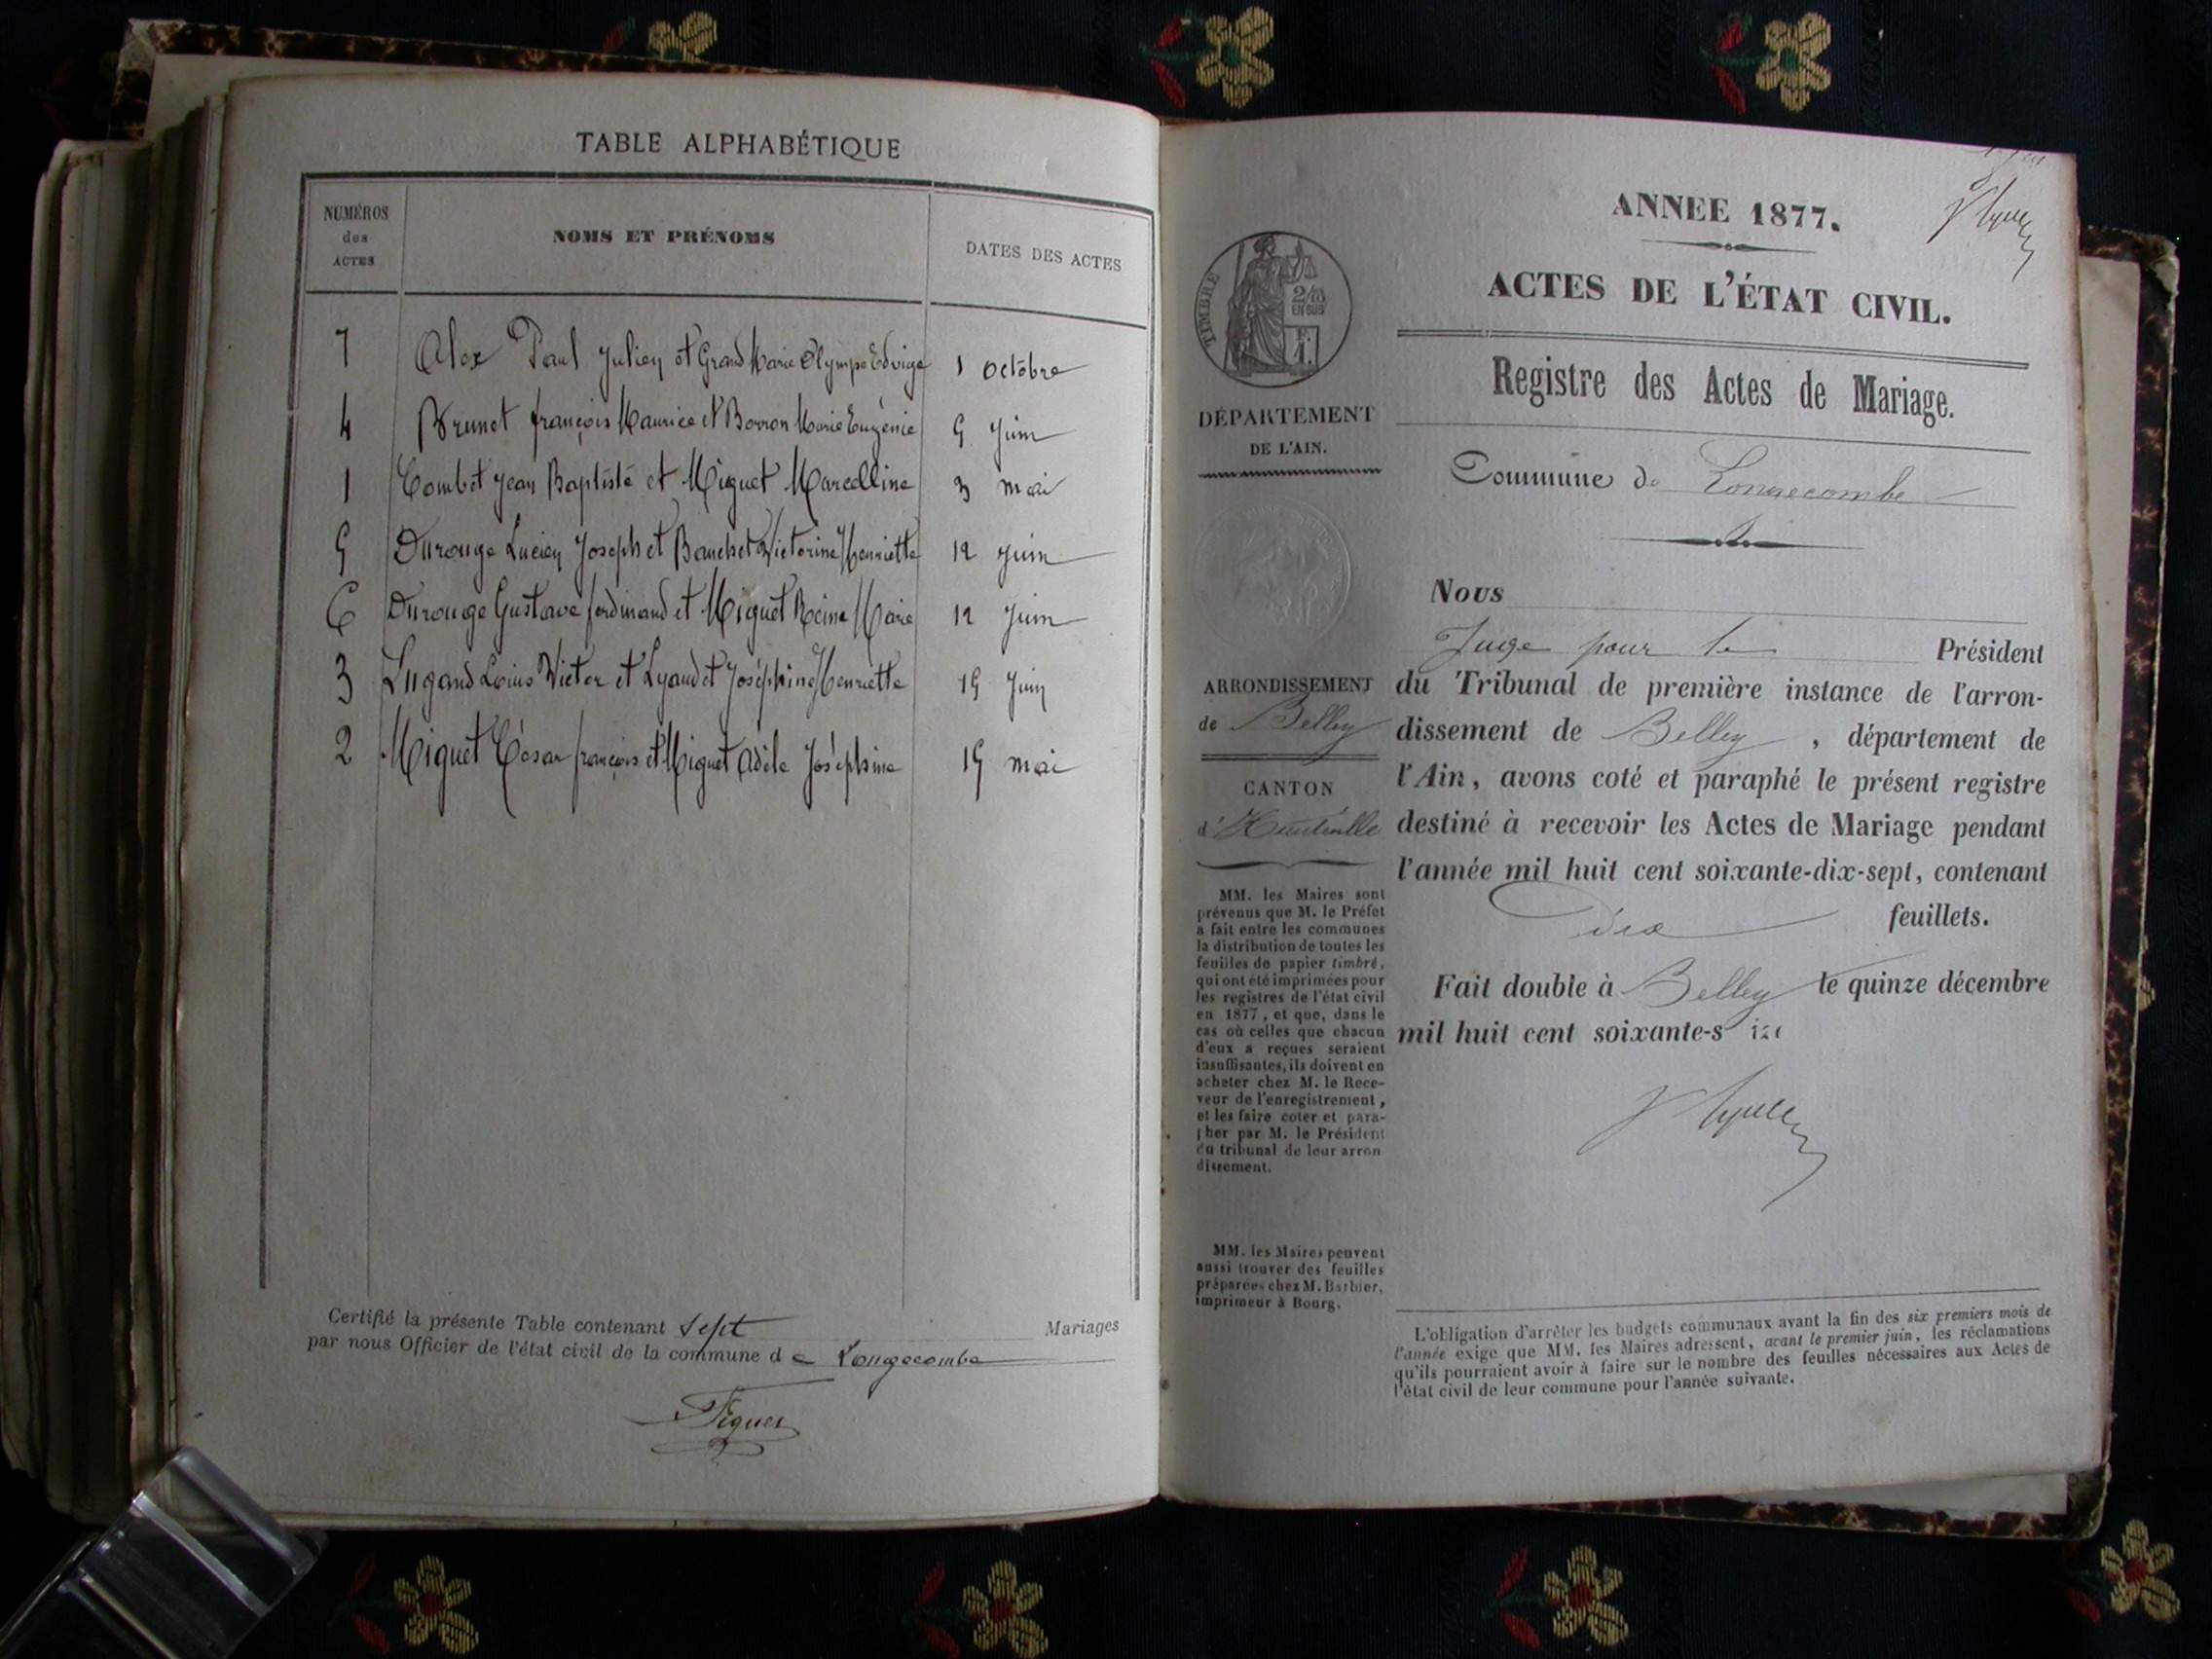 TABLE ALPHABÉTIQUE
NUMÉROS des ACTES
NOMS ET PRÉNOMS
DATES DES ACTES
7 Alex Paul Julien et Grand Marie Olympe Edvige 1 octobre
4 Brunet françois Maurice et Borron Marie Eugénie 5 juin
1 Combet Jean Baptiste et Miguet Marcelline 3 mai
5 Durouge Lucien Joseph et Banchet Victorine Henriette 12 juin
6 Durouge Gustave ferdinand et Miguet Reine Marie 12 juin
3 Lugand Louis Victor et Lyaudet Joséphine Henriette 15 juin
2 Miguet César françois et Miguet Adèle Joséphine 15 mai
Certifié la présente Table contenant sept Mariages
par nous Officier de l'état civil de la commune de Longecombe
ANNEE 1877.
ACTES DE L'ÉTAT CIVIL.
Registre des Actes de Mariage.
Commune de Longecombe
TIMBRE
2/10
EN SUS
DÉPARTEMENT
DE L'AIN.
ARRONDISSEMENT
de Belley
CANTON
d'Hauteville
MM. les Maires sont
prévenus que M. le Préfet
a fait entre les communes
la distribution de toutes les
feuilles de papier timbré,
qui ont été imprimées pour
les registres de l'état civil
en 1877, et que, dans le
cas où celles que chacun
d'eux a reçues seraient
insuffisantes, ils doivent en
acheter chez M. le Rece-
veur de l'enregistrement,
et les faire coter et para-
pher par M. le Président
du tribunal de leur arron
dissement.
MM. les Maires peuvent
aussi trouver des feuilles
préparées chez M. Barbier,
imprimeur à Bourg.
Nous
Juge pour le Président
du Tribunal de première instance de l'arron-
dissement de Belley, département de
l'Ain, avons coté et paraphé le présent registre
destiné à recevoir les Actes de Mariage pendant
l'année mil huit cent soixante-dix-sept, contenant
Dix feuillets.
Fait double à Belley le quinze décembre
mil huit cent soixante-s
L'obligation d'arrêter les budgets communaux avant la fin des six premiers mois de
l'année exige que MM. les Maires adressent, avant le premier juin, les réclamations
qu'ils pourraient avoir à faire sur le nombre des feuilles nécessaires aux Actes de
l'état civil de leur commune pour l'année suivante.